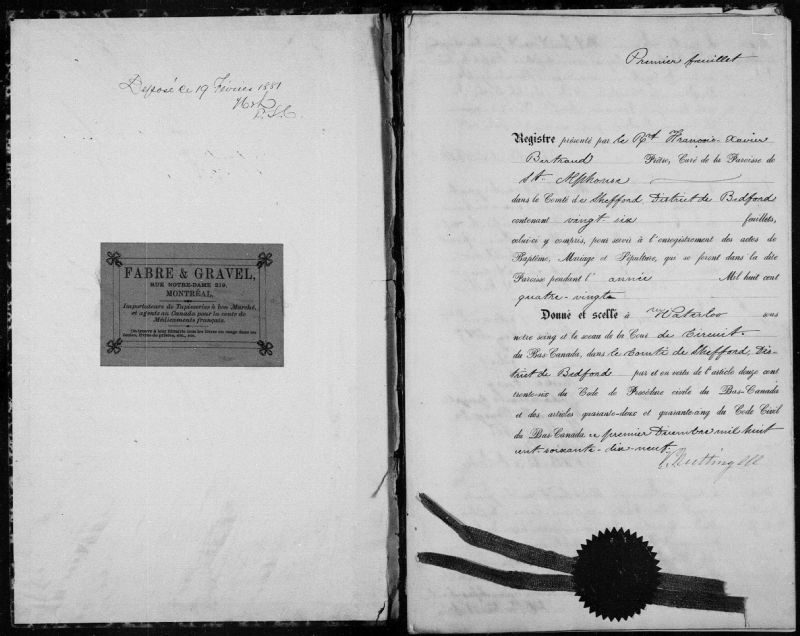 Déposé ce 19 Février 1881
FABRE & GRAVEL,
RUE NOTRE-DAME 219,
MONTRÉAL,
Importateurs de Tapisseries à bon Marché,
et agents au Canada pour la vente de
Médicaments français.
On trouve à leur librairie tous les livres en usage dans les
écoles, livres de prières, etc., etc.
Premier feuillet
Registre présenté par le Rt François-Xavier
Bertrand Prêtre, Curé de la Paroisse de
St. Alphonse
dans le Comté de Shefford, District de Bedford
contenant vingt six feuillets,
celui-ci y compris, pour servir à l'enregistrement des actes de
Baptême, Mariage et Sépulture, qui se feront dans la dite
Paroisse pendant l'année Mil huit cent
quatre-vingt
Donné et scellé à Waterloo sous
notre seing et le sceau de la Cour de Circuit
du Bas-Canada, dans le Comté de Shefford, Dis-
trict de Bedford par et en vertu de l'article douze cent
trente-six du Code de Procédure civile du Bas-Canada
et des articles quarante-deux et quarante-cinq du Code Civil
du Bas-Canada ce premier Décembre mil huit
cent-soixante-dix-neuf.